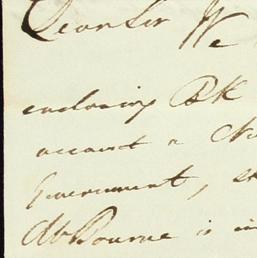 Dear Sir We
enclosing BK
account a
Government,
Mr Bourne is in